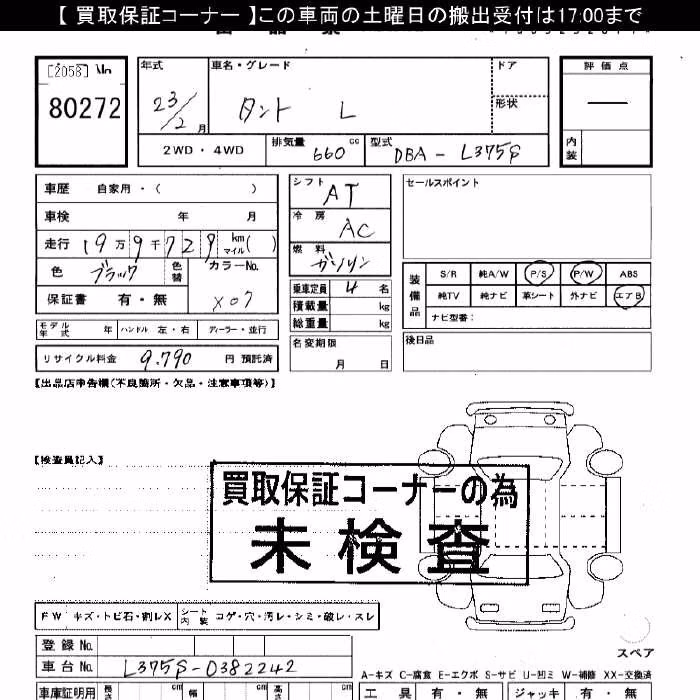 【 買取保証コーナー 】この車両の土曜日の搬出受付は17:00まで
[2058] No
80272
年式
23/2 月
車名・グレード
タント L
ドア
形状
評価点
―
内装
2WD・4WD
排気量 660 cc
型式 DBA-L375S
車歴 自家用・( )
車検 年 月
走行 19万9千729 km マイル ( )
色 ブラック 色替 カラーNo. X07
保証書 有・無
モデル年式 年 ハンドル 左・右 ディーラー・並行
リサイクル料金 9.790 円 預託済
シフト AT
冷房 AC
燃料 ガソリン
乗車定員 4 名
積載量 kg
総重量 kg
名変期限 月 日
セールスポイント
装備品
S/R 純A/W P/S P/W ABS
純TV 純ナビ 革シート 外ナビ エアB
ナビ型番:
後日品
【出品店申告欄(不良箇所・欠品・注意事項等)】
【検査員記入】
買取保証コーナーの為
未検査
FW キズ・トビ石・割レX シート内装 コゲ・穴・汚レ・シミ・破レ・スレ
登録No.
車台No. L375S-0382242
車庫証明用 長さ cm 幅 cm 高さ cm
スペア
A-キズ C-腐食 E-エクボ S-サビ U-凹ミ W-補修 XX-交換済
工具 有・無 ジャッキ 有・無